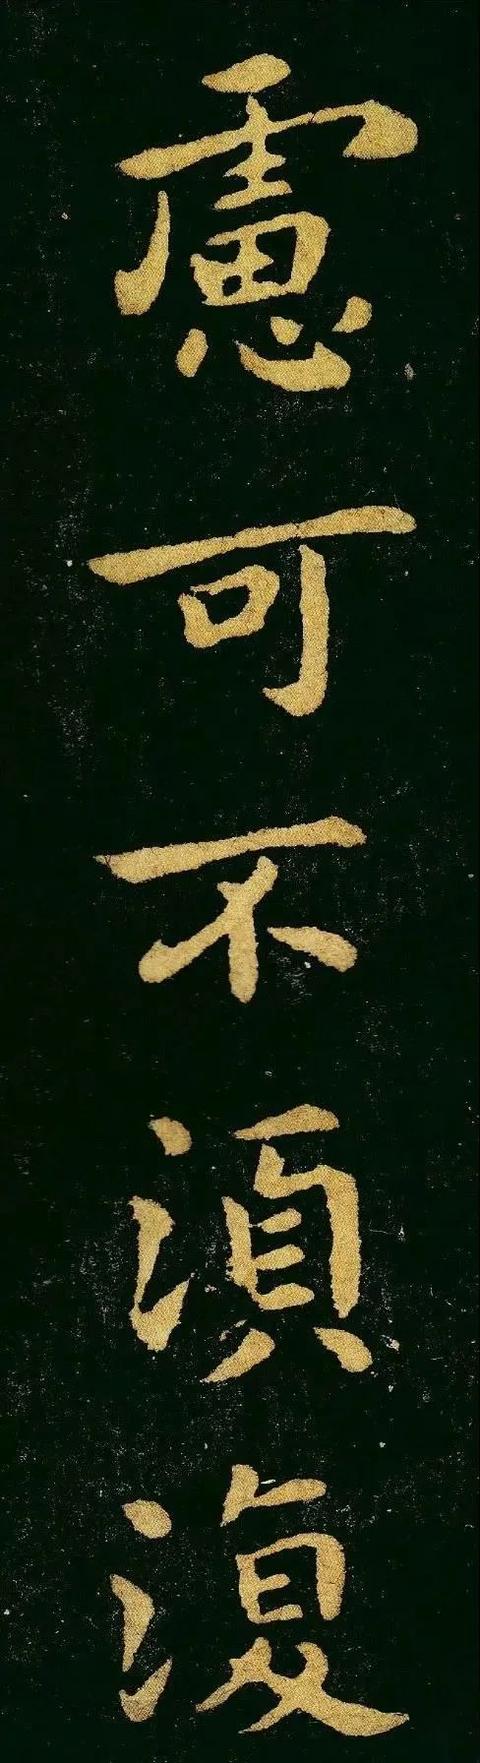 慮可不須復